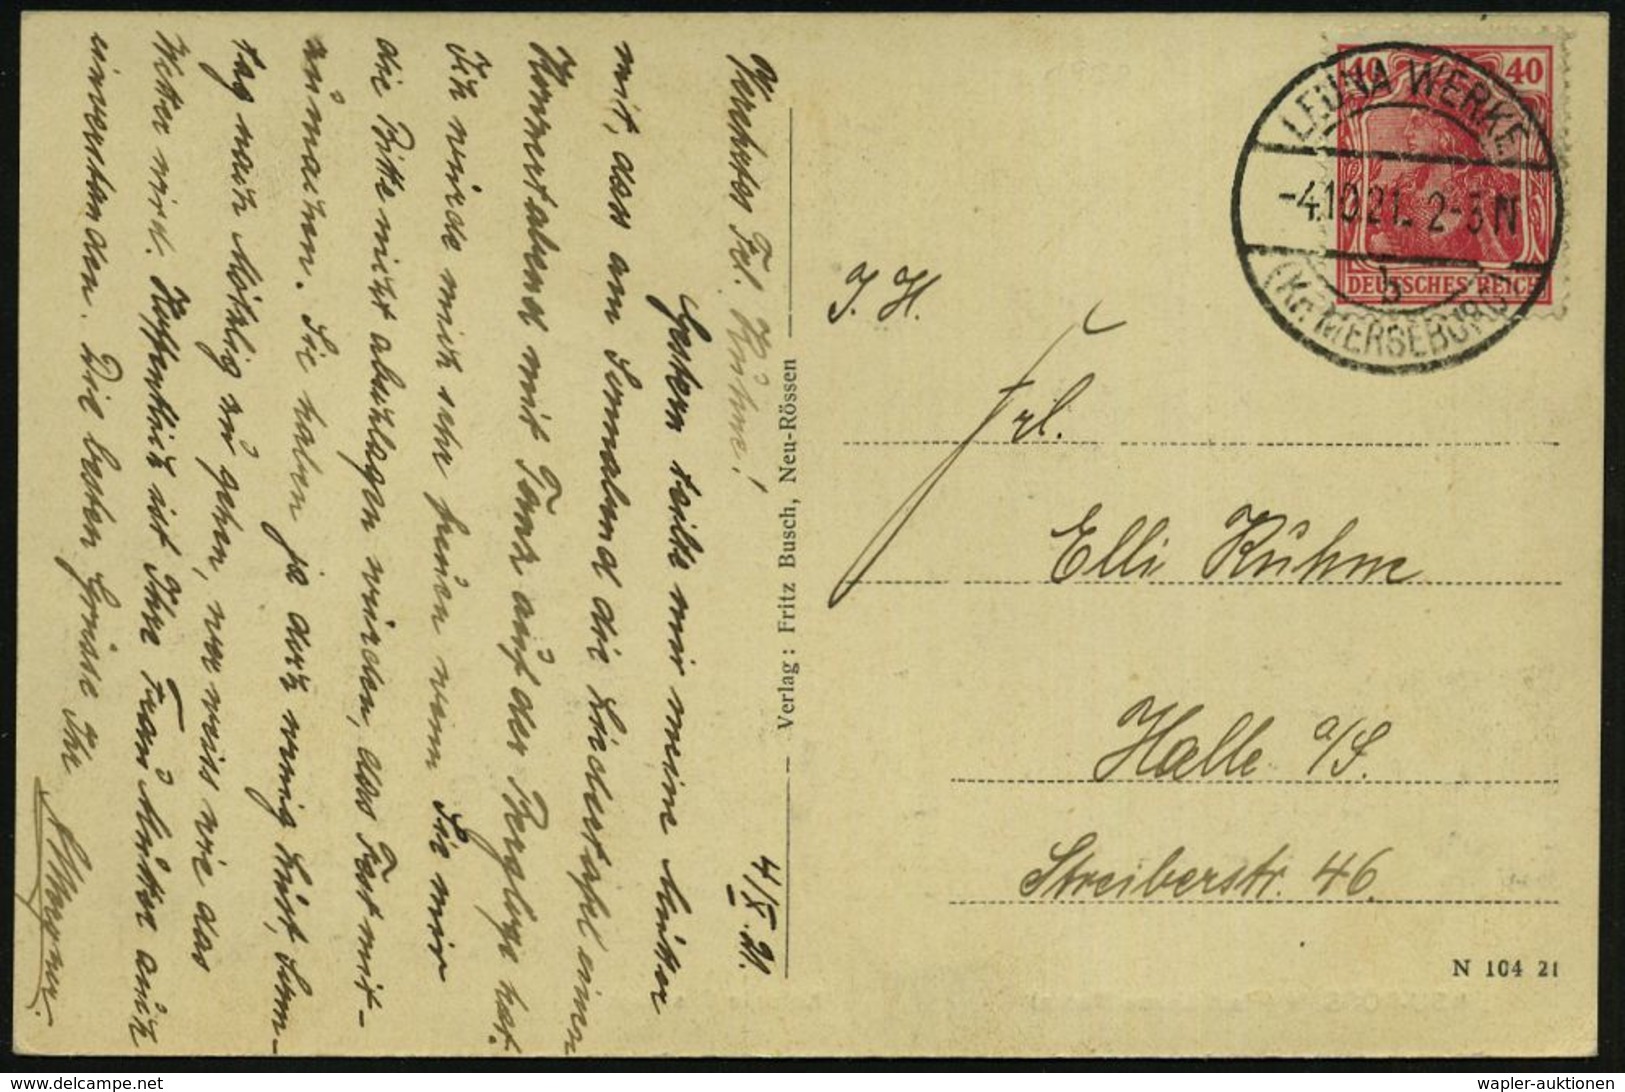 4/X. 21.
Wertes Frl. Kühne!
Gestern teilte mir meine Mutter
mit, das am Sonnabend die Liedertafel einen
Konzertabend mit Tanz auf der Bergloge hat.
Ich würde mich sehr freuen wenn Sie mir
die Bitte nicht abschlagen würden, das Fest mit-
zumachen. Sie haben ja doch wenig Lust, Sonn-
tag nach Möthlig zu gehen, wer weiss wie das
Wetter wird. Hoffentlich ist Ihre Frau Mutter auch
einverstanden. Die besten Grüsse Ihr
Verlag: Fritz Busch, Neu-Rössen
40 40
DEUTSCHES REICH
LEUNA WERKE
-4.10.21. 2-3 N
b
(KR. MERSEBURG)
I. H.
Frl.
Elli Kühne
Halle a/S.
Streiberstr. 46.
N 104 21
© wapler-auktionen